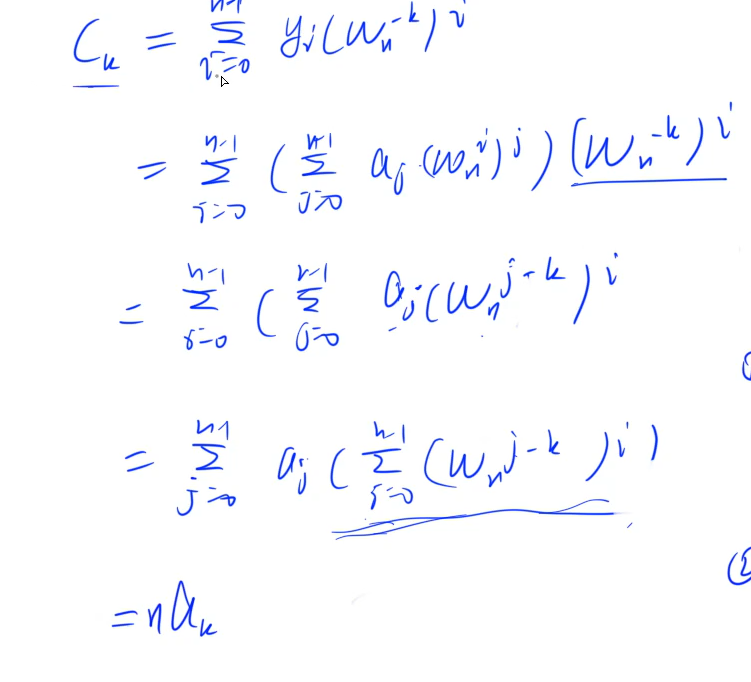 C_k = \sum_{i=0}^{n-1} y_i (w_n^{-k})^i
= \sum_{i=0}^{n-1} ( \sum_{j=0}^{n-1} a_j (w_n^i)^j ) (w_n^{-k})^i
= \sum_{i=0}^{n-1} ( \sum_{j=0}^{n-1} a_j (w_n^{j-k})^i
= \sum_{j=0}^{n-1} a_j ( \sum_{i=0}^{n-1} (w_n^{j-k})^i )
= n a_k